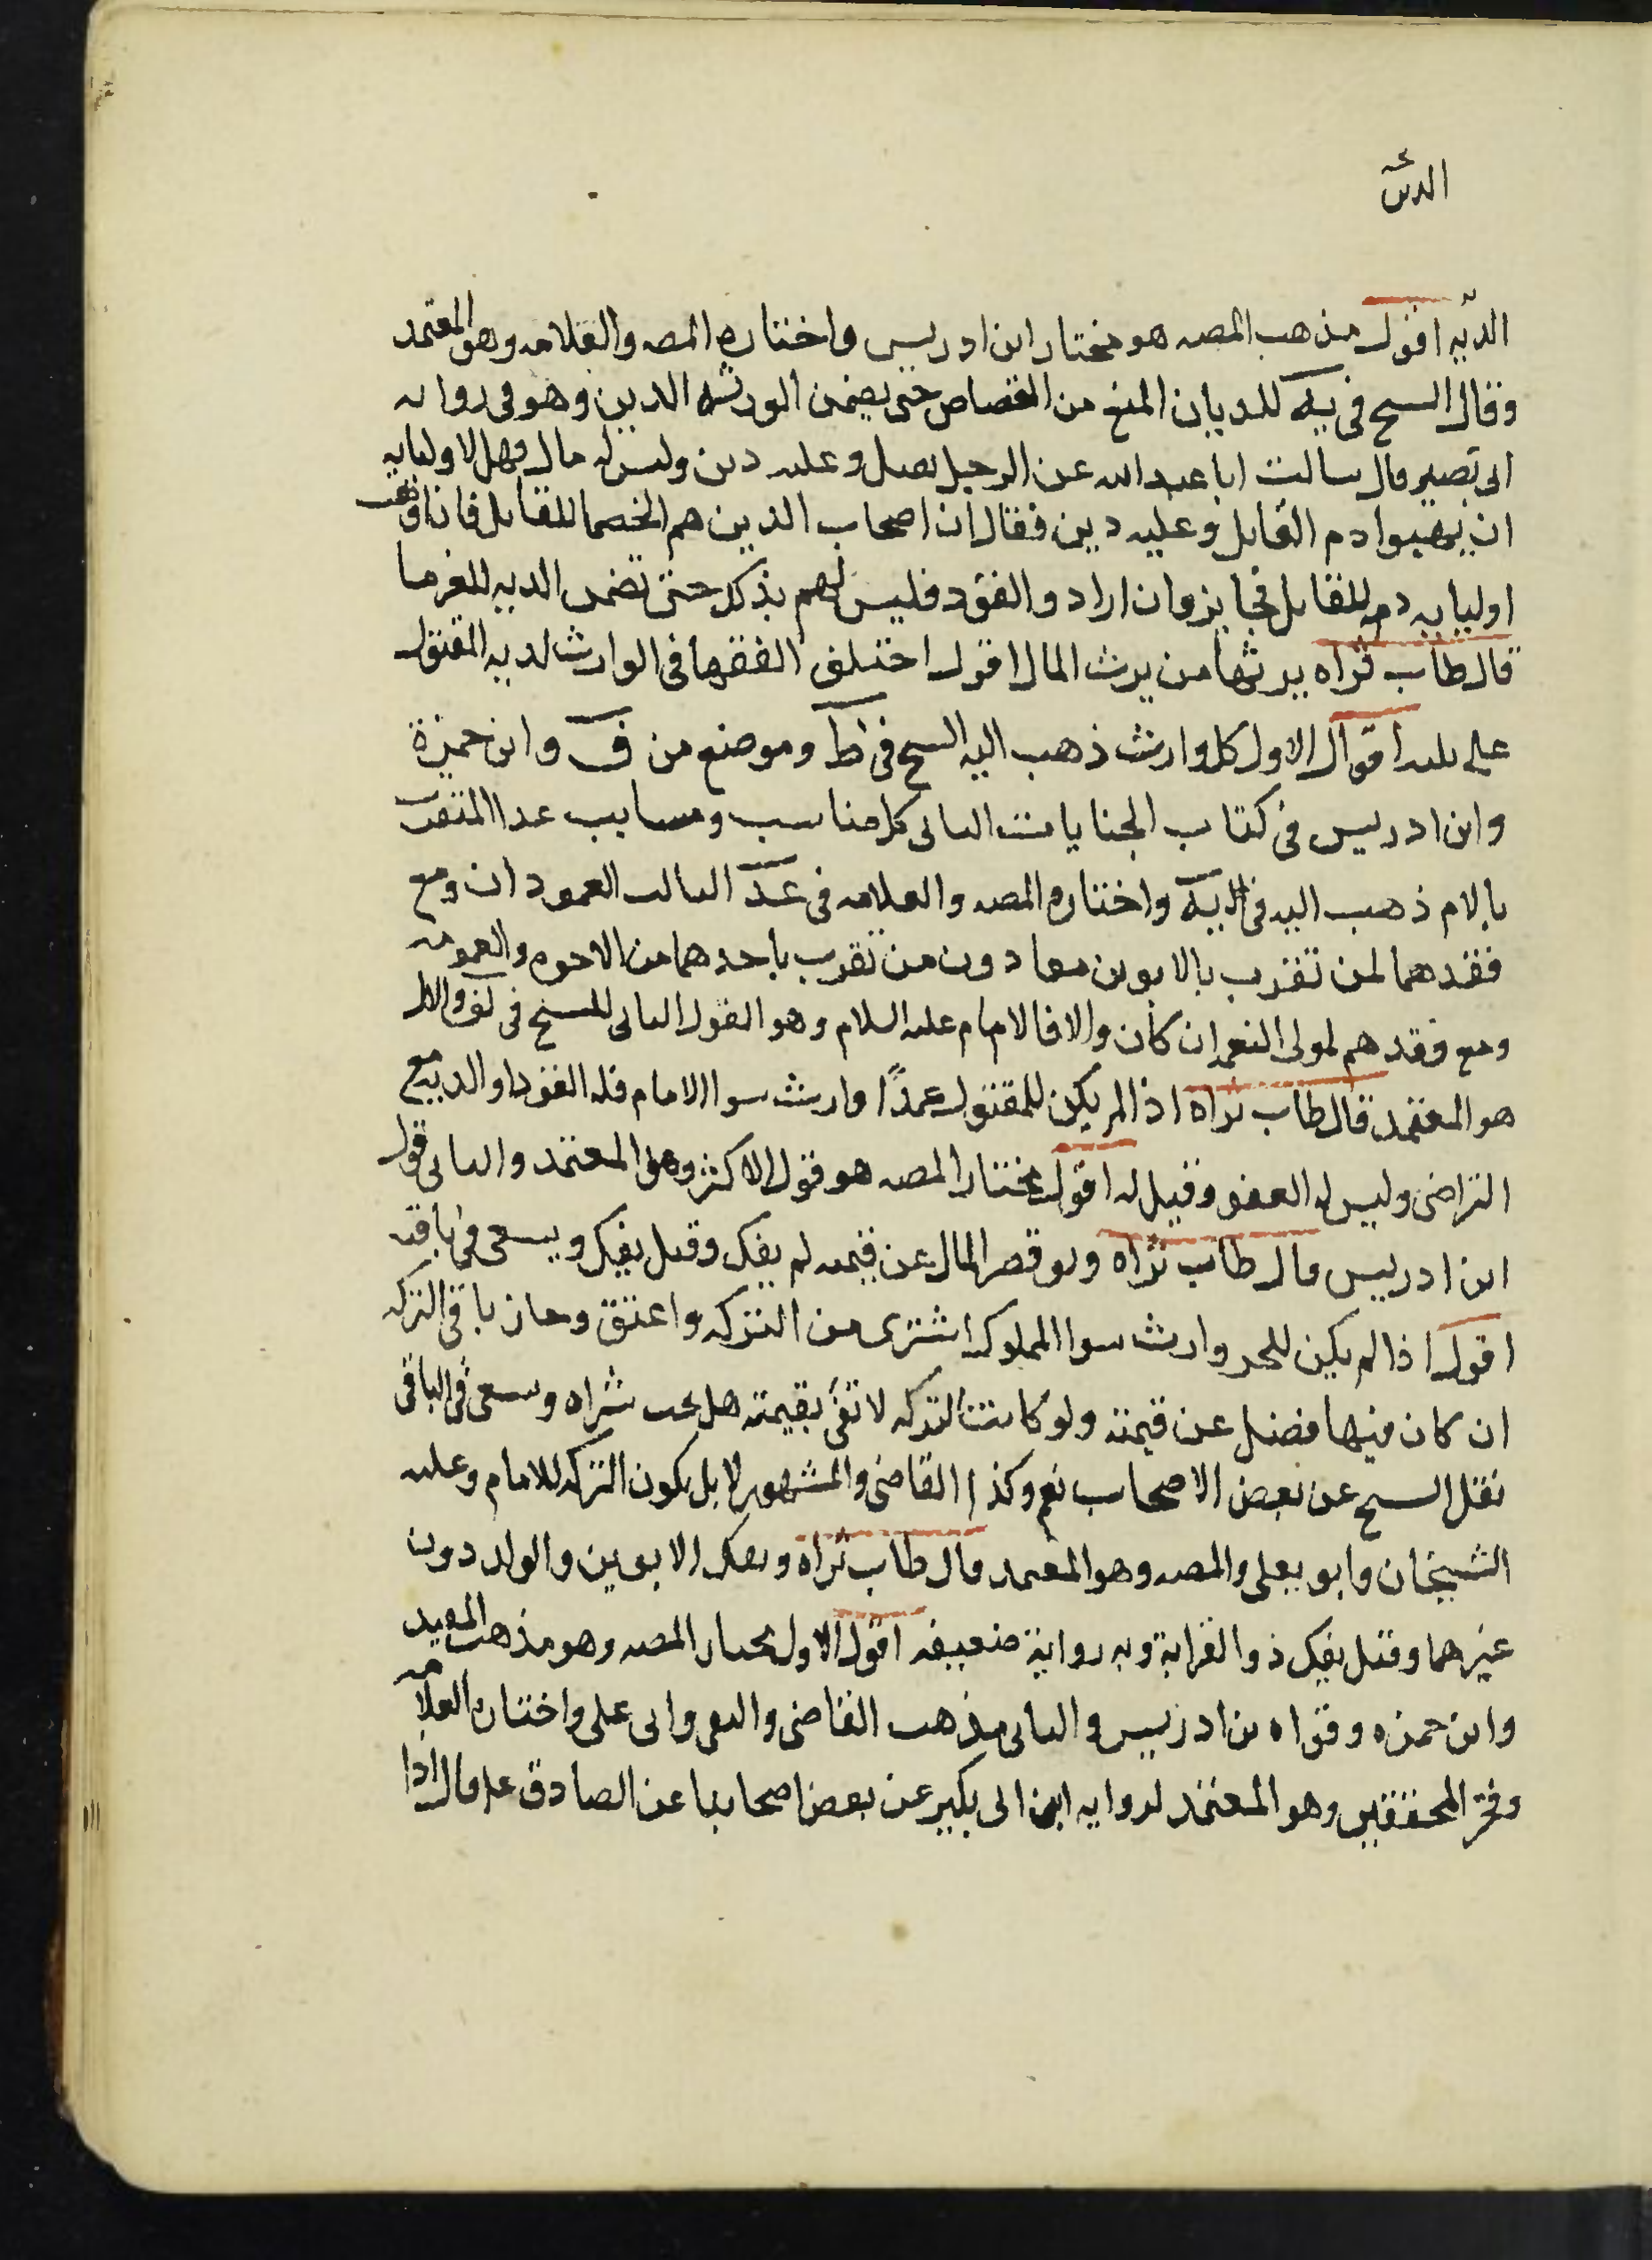 الدين
الديه اقول مذهب المصه هو مختار ابن ادريس واختاره المصه والعلامه وهو المعتمد
وقال السح في يه للديان المنع من القصاص حتى يضمن الورثه الدين وهو فى روايه
ابى بصير قال سالت ابا عبد الله عن الرجل يعىل وعليه دين وليس له مال فهل لاوليايه
ان يهبوا دم القايل وعليه دين فقال ان اصحاب الدين هم الخصما للقايل فان وهب
اوليايه دمه للقايل فجايز وان ارادوا القود فليس لهم بذلك حتى تضمن الديه للغرما
قال طاب ثراه يرثها من يرث المال اقول اختلف الفقها فى الوارث لديه المقتول
على ىلىه اقوال الاول كل وارث ذهب اليه السح فى ط وموضع من ف وابن حمزة
وابن ادريس فى كتاب الجنايات الىانى كل مناسب ومسابب عدا المتقرب
بالام ذهب اليه فى يه واختاره المصه والعلامه فى عد الىالث العمودان ومع
فقدهما لمن تقرب بالابوين معا دون من تقرب باحدهما من الاخوه والعمومه
ومع فقدهم لمولى النعمه ان كان والا فالامام عليه السلام وهو القول الىانى للسح فى ف والاول
هو المعتمد قال طاب ثراه اذا لم يكن للمقتول عمدًا وارث سوا الامام فله القود او الديه مع
التراضى وليس له العفو وقيل له اقول مختار المصه هو قول الاكثر وهو المعتمد والىانى قول
ابن ادريس قال طاب ثراه ولو قصر المال عن قيمته لم يفك وقيل يفك ويسعى فى باقيه
اقول اذا لم يكن للحر وارث سوا المملوك اشترى من التركه واعتق وحاز باقى التركه
ان كان فيها فضل عن قيمته ولو كانت التركه لا تفى بقيمته هل يجب شراه ويسعى فى الباقى
نقل السح عن بعض الاصحاب نعم وكذا القاضى والمشهور لا بل يكون التركه للامام وعليه
الشيخان وابو يعلى والمصه وهو المعتمد قال طاب ثراه ويفك الابوين والولد دون
غيرهما وقيل يفك ذو القرابة وبه رواية ضعيفه اقول الاول مختار المصه وهو مذهب المفيد
وابن حمزه وقواه بن ادريس والىانى مذهب القاضى والتقى وابى على واختاره العلامه
وفخر المحققين وهو المعتمد لروايه ابن ابى بكير عن بعض اصحابنا عن الصادق عليه قال اذا